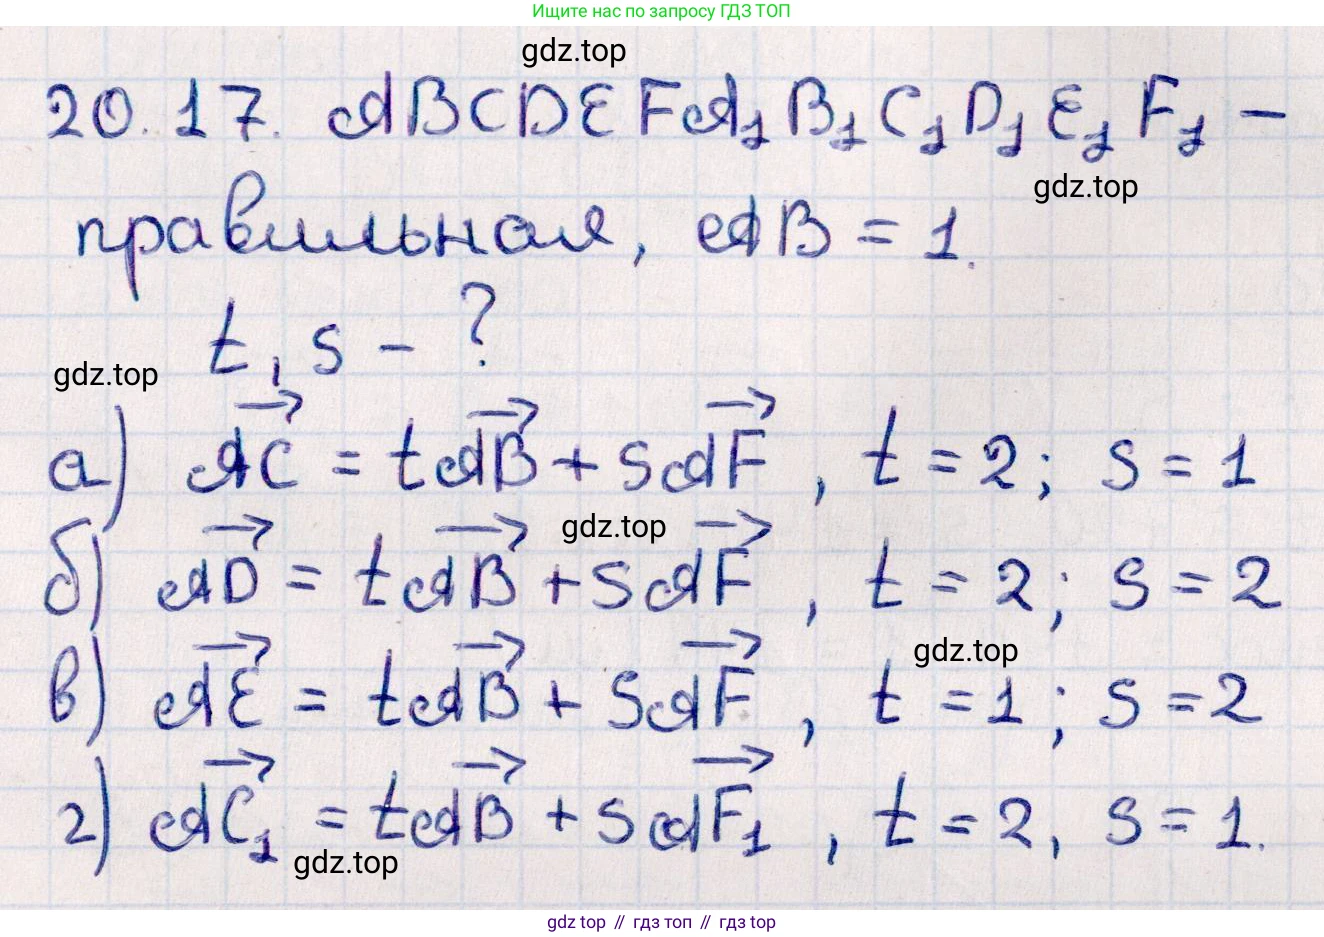 Ищите нас по запросу ГДЗ ТОП
gdz.top
20.17. ABCDEFA₁B₁C₁D₁E₁F₁ –
gdz.top
правильная, AB = 1.
t, s – ?
gdz.top
а) AC⃗ = tAB⃗ + sAF⃗, t = 2; s = 1
gdz.top
б) AD⃗ = tAB⃗ + sAF⃗, t = 2; s = 2
gdz.top
в) AE⃗ = tAB⃗ + sAF⃗, t = 1; s = 2
г) AC₁⃗ = tAB⃗ + sAF₁⃗, t = 2, s = 1.
gdz.top
gdz top // гдз топ // gdz top